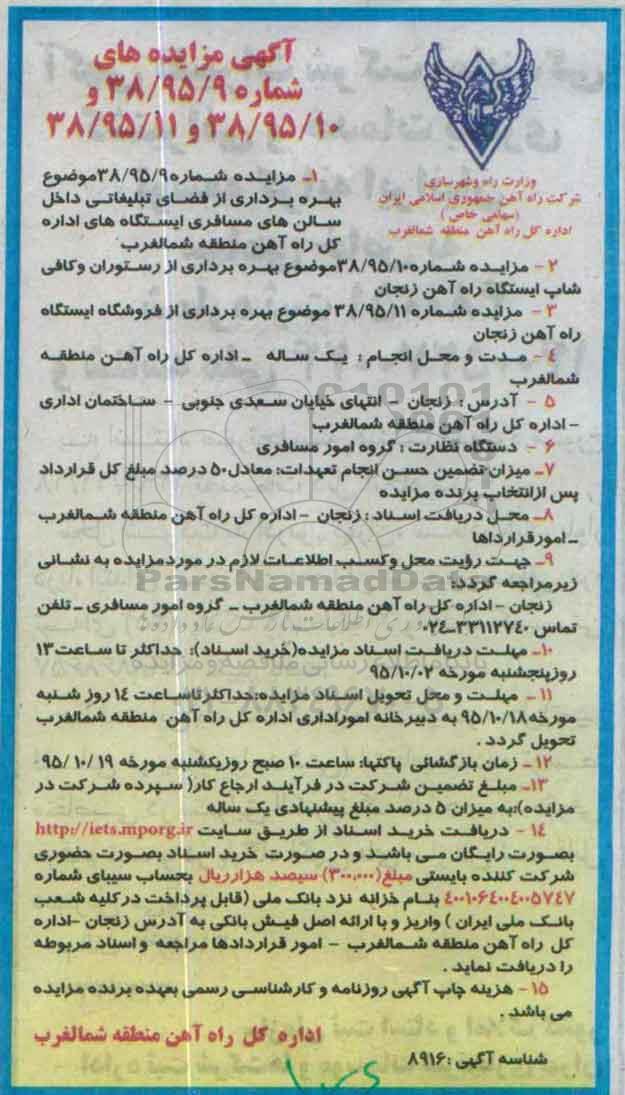 آگهی مزایده های
شماره ۳۸/۹۵/۹ و
۳۸/۹۵/۱۰ و ۳۸/۹۵/۱۱
وزارت راه وشهرسازی
شرکت راه آهن جمهوری اسلامی ایران
(سهامی خاص)
اداره کل راه آهن منطقه شمالغرب
۱- مزایده شماره۳۸/۹۵/۹موضوع
بهره برداری از فضای تبلیغاتی داخل
سالن های مسافری ایستگاه های اداره
کل راه آهن منطقه شمالغرب
۲ - مزایده شماره۳۸/۹۵/۱۰موضوع بهره برداری از رستوران وکافی
شاپ ایستگاه راه آهن زنجان
۳ - مزایده شماره ۳۸/۹۵/۱۱ موضوع بهره برداری از فروشگاه ایستگاه
راه آهن زنجان
۴ - مدت و محل انجام : یک ساله - اداره کل راه آهن منطقه
شمالغرب
۵ - آدرس : زنجان - انتهای خیابان سعدی جنوبی - ساختمان اداری
- اداره کل راه آهن منطقه شمالغرب
۶ - دستگاه نظارت : گروه امور مسافری
۷- میزان تضمین حسن انجام تعهدات: معادل۵۰ درصد مبلغ کل قرارداد
پس ازانتخاب برنده مزایده
۸- محل دریافت اسناد : زنجان - اداره کل راه آهن منطقه شمالغرب
- امورقراردادها
۹- جهت رؤیت محل وکسب اطلاعات لازم در موردمزایده به نشانی
زیرمراجعه گردد:
زنجان - اداره کل راه آهن منطقه شمالغرب - گروه امور مسافری - تلفن
تماس ۳۳۱۱۲۷۴۰-۰۲۴
۱۰- مهلت دریافت اسناد مزایده(خرید اسناد): حداکثر تا ساعت۱۳
روزپنجشنبه مورخه ۹۵/۱۰/۰۲
۱۱ - مهلت و محل تحویل اسناد مزایده:حداکثرتاساعت ۱۴ روز شنبه
مورخه ۹۵/۱۰/۱۸ به دبیرخانه اموراداری اداره کل راه آهن منطقه شمالغرب
تحویل گردد .
۱۲- زمان بازگشائی پاکتها: ساعت ۱۰ صبح روزیکشنبه مورخه ۱۹ /۱۰ /۹۵
۱۳- مبلغ تضمین شرکت در فرآیند ارجاع کار( سپرده شرکت در
مزایده):به میزان ۵ درصد مبلغ پیشنهادی یک ساله
۱۴ - دریافت خرید اسناد از طریق سایت http://iets.mporg.ir
بصورت رایگان می باشد و در صورت خرید اسناد بصورت حضوری
شرکت کننده بایستی مبلغ(۳۰۰،۰۰۰) سیصد هزارریال بحساب سیبای شماره
۴۰۰۱۰۶۴۰۰۴۰۰۵۷۴۷ بنام خزانه نزد بانک ملی (قابل پرداخت درکلیه شعب
بانک ملی ایران ) واریز و با ارائه اصل فیش بانکی به آدرس زنجان -اداره
کل راه آهن منطقه شمالغرب - امور قراردادها مراجعه و اسناد مربوطه
را دریافت نماید .
۱۵- هزینه چاپ آگهی روزنامه و کارشناسی رسمی بعهده برنده مزایده
می باشد .
اداره کل راه آهن منطقه شمالغرب
شناسه آگهی :۸۹۱۶
ParsNamadData